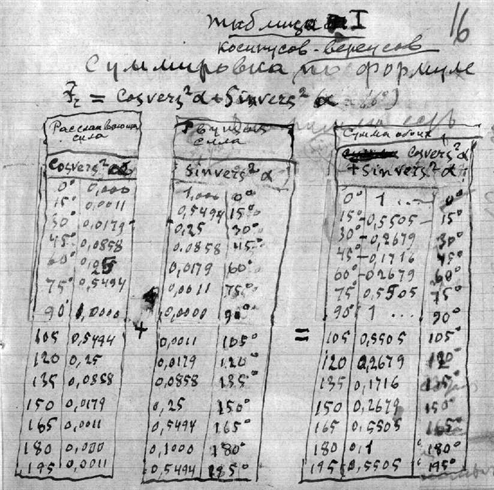 Таблица I
16
косинусов-версусов
Суммировка по формуле
= Cosvers²α + Sinvers²α
сила
Рвущая сила
Сумма обоих
Cosvers²α
Sinvers²α
Cosvers²α + Sinvers²α
0° 0,000 1,000 0° 0° 1 ... 0°
15° 0,0011 0,5494 15° 15° 0,5505 15°
30° 0,0179 0,25 30° 30° 0,2679 30°
45° 0,0858 0,0858 45° 45° 0,1716 45°
60° 0,25 0,0179 60° 60° 0,2679 60°
75° 0,5494 0,0011 75° 75° 0,5505 75°
90° 1,0000 + 0,0000 90° 90° 1 ... 90°
105 0,5494 0,0011 105° = 105 0,5505 105°
120 0,25 0,0179 120° 120 0,2679 120°
135 0,0858 0,0858 135° 135 0,1716 135°
150 0,0179 0,25 150° 150 0,2679 150°
165 0,0011 0,5494 165° 165 0,5505 165°
180 0,000 0,1000 180° 180 0,1 180°
195 0,0011 0,5494 195 0,5505 195°